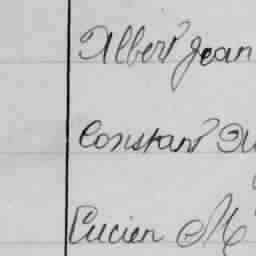 Albert Jean
Constant
Lucien M